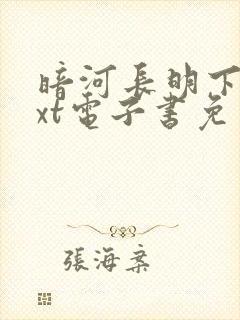 暗河長明下
xt電子書免
張海案